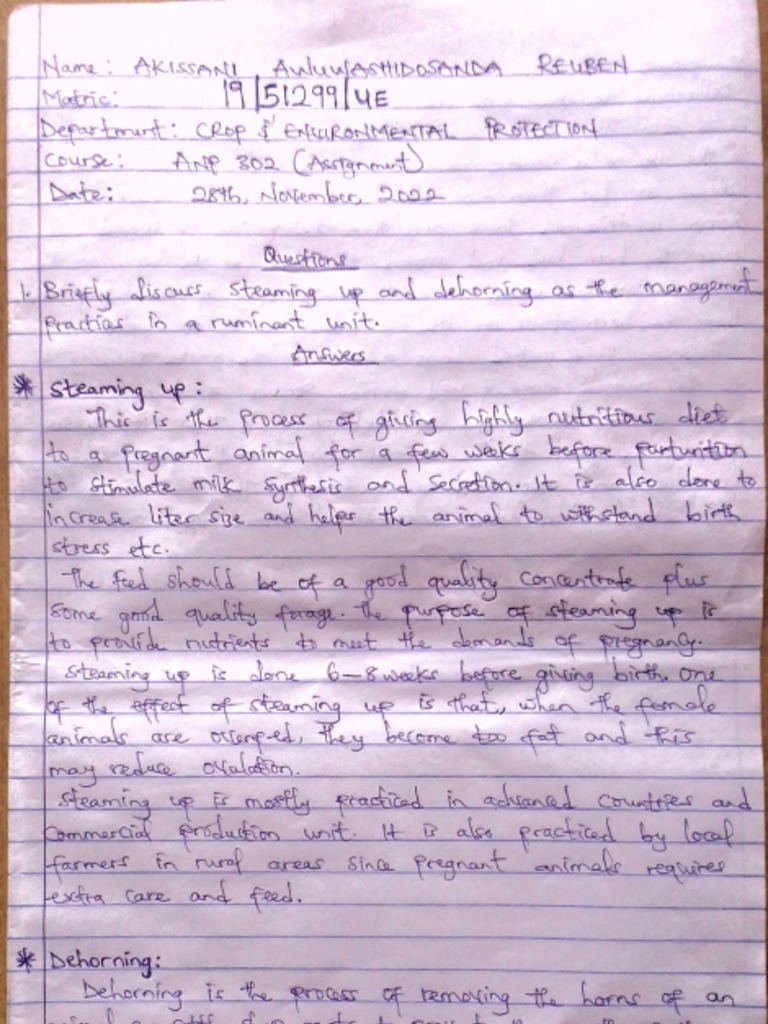 Name: AKISSANI AWUWASHIDOSANDA REUBEN
Matric: 19/51299/UE
Department: CROP & ENVIRONMENTAL PROTECTION
Course: ANP 302 (Assignment)
Date: 28th, November, 2022
Questions
1. Briefly discuss steaming up and dehorning as the management
practices in a ruminant unit.
Answers
* Steaming up:
This is the process of giving highly nutritious diet
to a pregnant animal for a few weeks before parturition
to stimulate milk synthesis and secretion. It is also done to
increase liter size and helps the animal to withstand birth
stress etc.
The feed should be of a good quality concentrate plus
some good quality forage. The purpose of steaming up is
to provide nutrients to meet the demands of pregnancy.
Steaming up is done 6-8 weeks before giving birth. One
of the effect of steaming up is that, when the female
animals are they become too fat and this
may reduce ovulation.
Steaming up is mostly practiced in advanced countries and
Commercial production unit. It is also practiced by local
farmers in rural areas since pregnant animals requires
extra care and feed.
* Dehorning:
Dehorning is the process of removing the horns of an